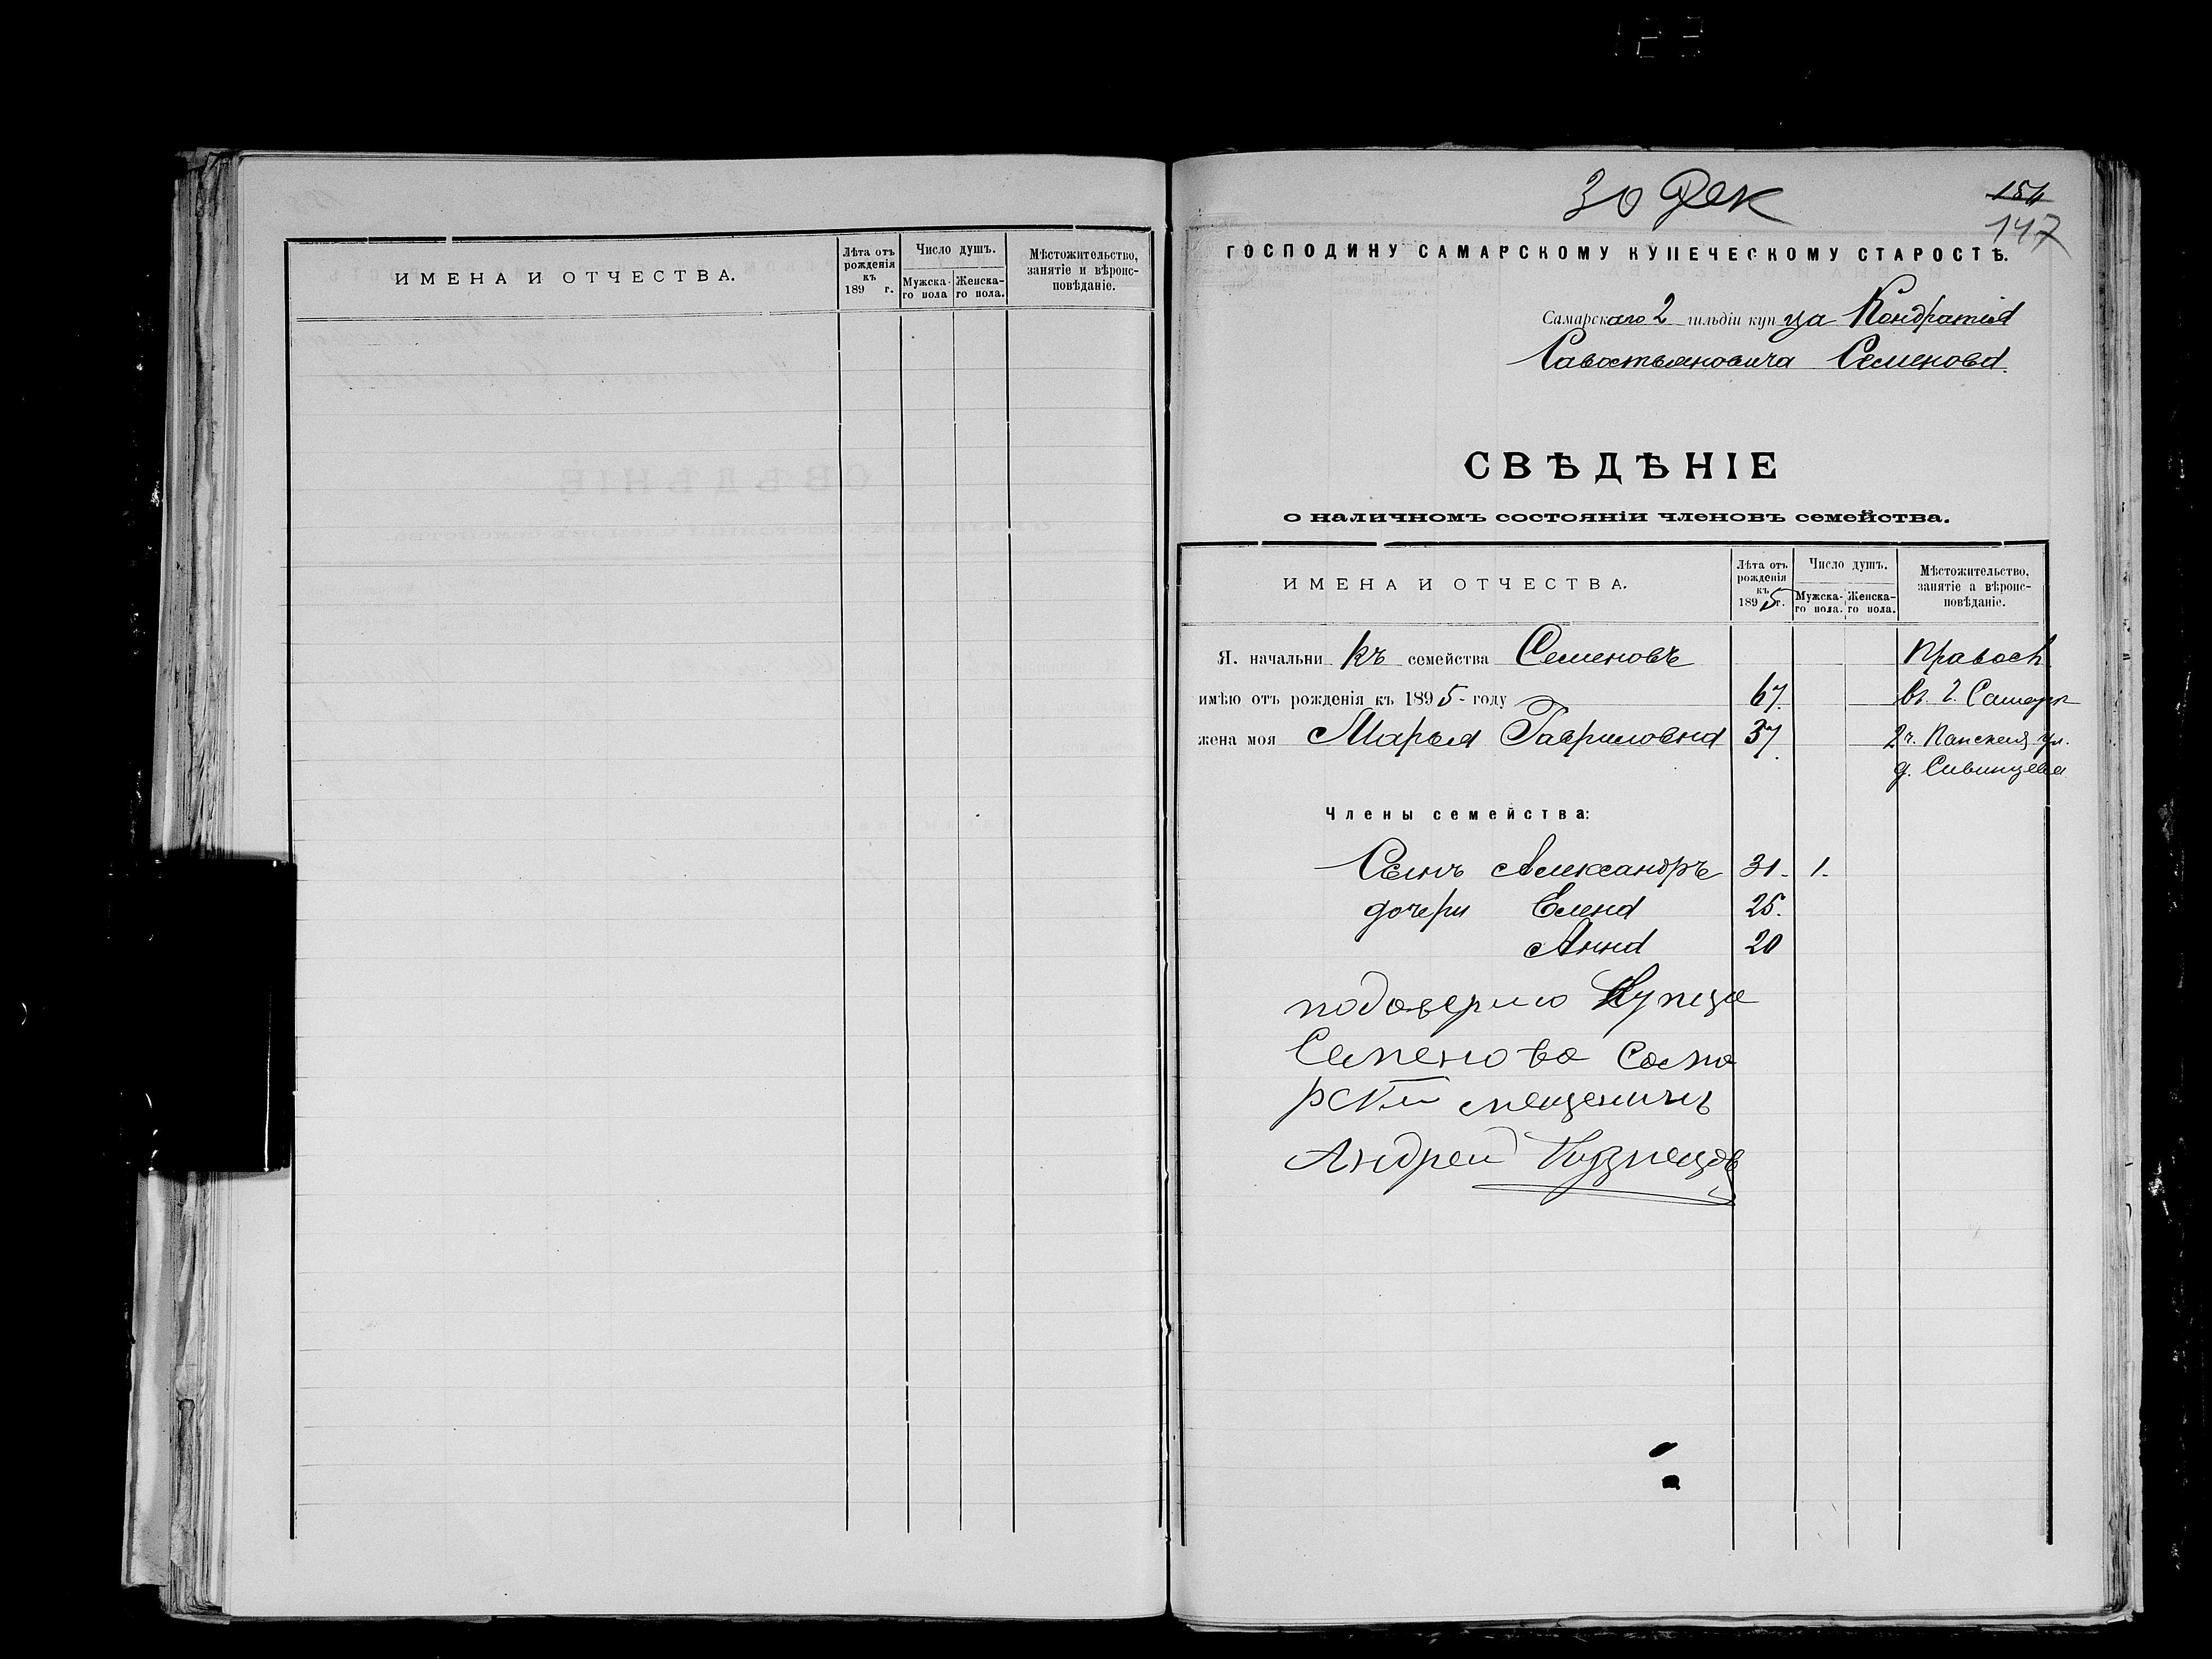 ИМЕНА И ОТЧЕСТВА.
Лѣта отъ рожденія къ 189 г.
Число душъ.
Мужска-го пола
Женска-го пола.
Мѣстожительство, занятіе и вѣроис-повѣданіе.
30 Дек
184
147
ГОСПОДИНУ САМАРСКОМУ КУПЕЧЕСКОМУ СТАРОСТѢ.
Самарскаго 2 гильдіи купца Кондратія
Савостьяновича Семенова.
СВѢДѢНІЕ
о наличномъ состояніи членовъ семейства.
ИМЕНА И ОТЧЕСТВА.
Лѣта отъ рожденія къ 1895 г.
Число душъ.
Мужска-го пола.
Женска-го пола.
Мѣстожительство, занятіе а вѣроис-повѣданіе.
Я. начальникъ семейства Семеновъ Правосл
имѣю отъ рожденія къ 1895 - году 67. въ г. Самарѣ
жена моя Марья Гавриловна 37. 2 ч. Панская ул.
д. Сивинцева
Члены семейства:
Сынъ Александръ 31. 1.
дочери Елена 25.
Анна 20
подоверию Купца
Семенова Сама
рский мещенинъ
Андрей Кузнецов